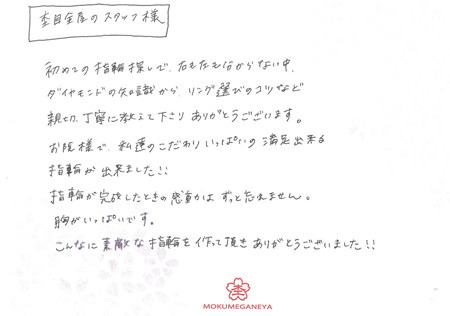 杢目金屋のスタッフ様
初めての指輪探しで、右も左も分からない中、
ダイヤモンドの知識から、リング選びのコツなど
親切、丁寧に教えて下さり ありがとうございます。
お陰様で、私達のこだわりいっぱいの満足出来る
指輪が出来ました!!
指輪が完成したときの感動は ずっと忘れません。
胸がいっぱいです。
こんなに素敵な指輪を作って頂き ありがとうございました!!
MOKUMEGANEYA